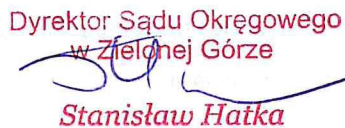 Dyrektor Sądu Okręgowego
w Zielonej Górze
Stanisław Hatka